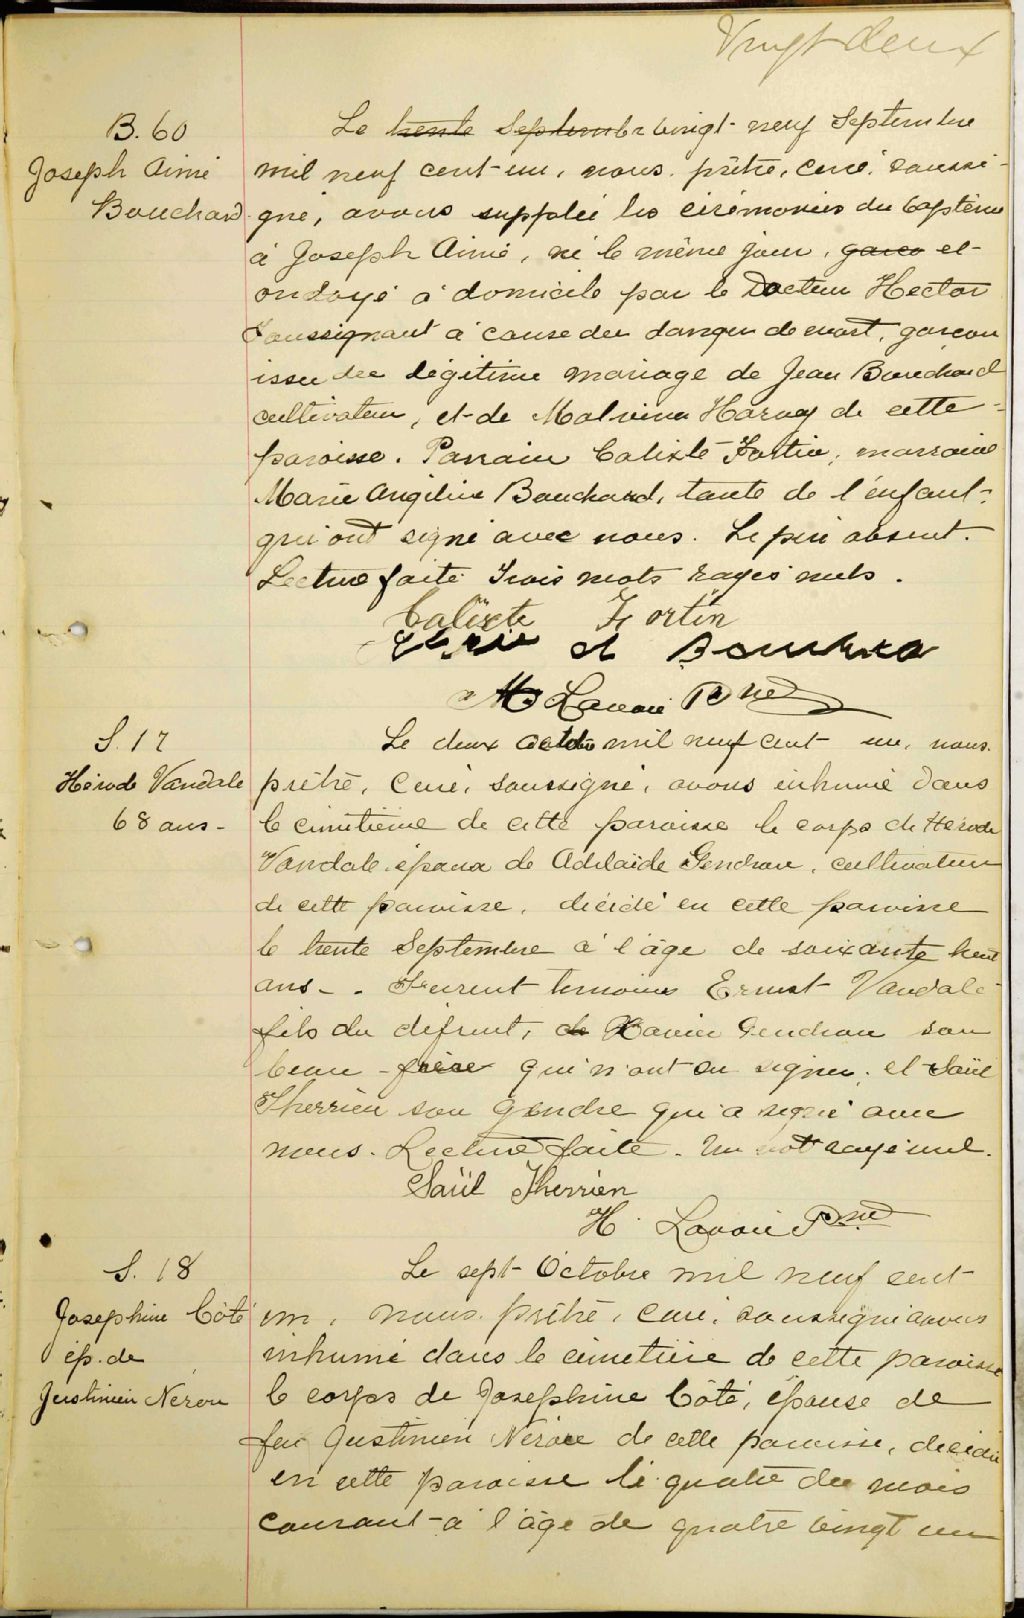 Vingt deux
B. 60
Joseph Aimé
Bouchard
Le trente Septembre vingt-neuf Septembre
mil neuf cent-un, nous, prêtre, curé, soussi-
gné, avons suppléé les cérémonies du baptême
à Joseph Aimé, né le même jour, garco et
ondoyé à domicile par le Docteur Hector
à cause du danger de mort, garçon
issu du légitime mariage de Jean Bouchard
cultivateur, et de Malvina Harvey de cette
paroisse. Parrain Calixte Fortin, marraine
Marie Angélina Bouchard, tante de l'enfant
qui ont signé avec nous. Le père absent.
Lecture faite. Trois mots rayés nuls.
Calixte Fortin
Bouchard
Lavoie Ptre
S. 17
Hérode Vandale
68 ans -
Le deux octobre mil neuf cent un, nous
prêtre, curé, soussigné, avons inhumé dans
le cimetière de cette paroisse le corps de Hérode
Vandale époux de Adélaïde Gendron, cultivateur
de cette paroisse, décédé en cette paroisse
le trente Septembre à l'âge de soixante huit
ans - . Furent témoins Ernest Vandale
fils du défunt, de Xavier Gendron son
beau-frère qui n'ont su signer, et Saül
Therrien son gendre qui a signé avec
nous. Lecture faite. Un mot rayé nul.
Saül Therrien
H. Lavoie Ptre
S. 18
Josephine Côté
ép. de
Justinien Néron
Le sept Octobre mil neuf cent
un, nous, prêtre, curé, soussigné avons
inhumé dans le cimetière de cette paroisse
le corps de Josephine Côté, épouse de
feu Justinien Néron de cette paroisse, décédée
en cette paroisse le quatre du mois
courant à l'âge de quatre vingt un